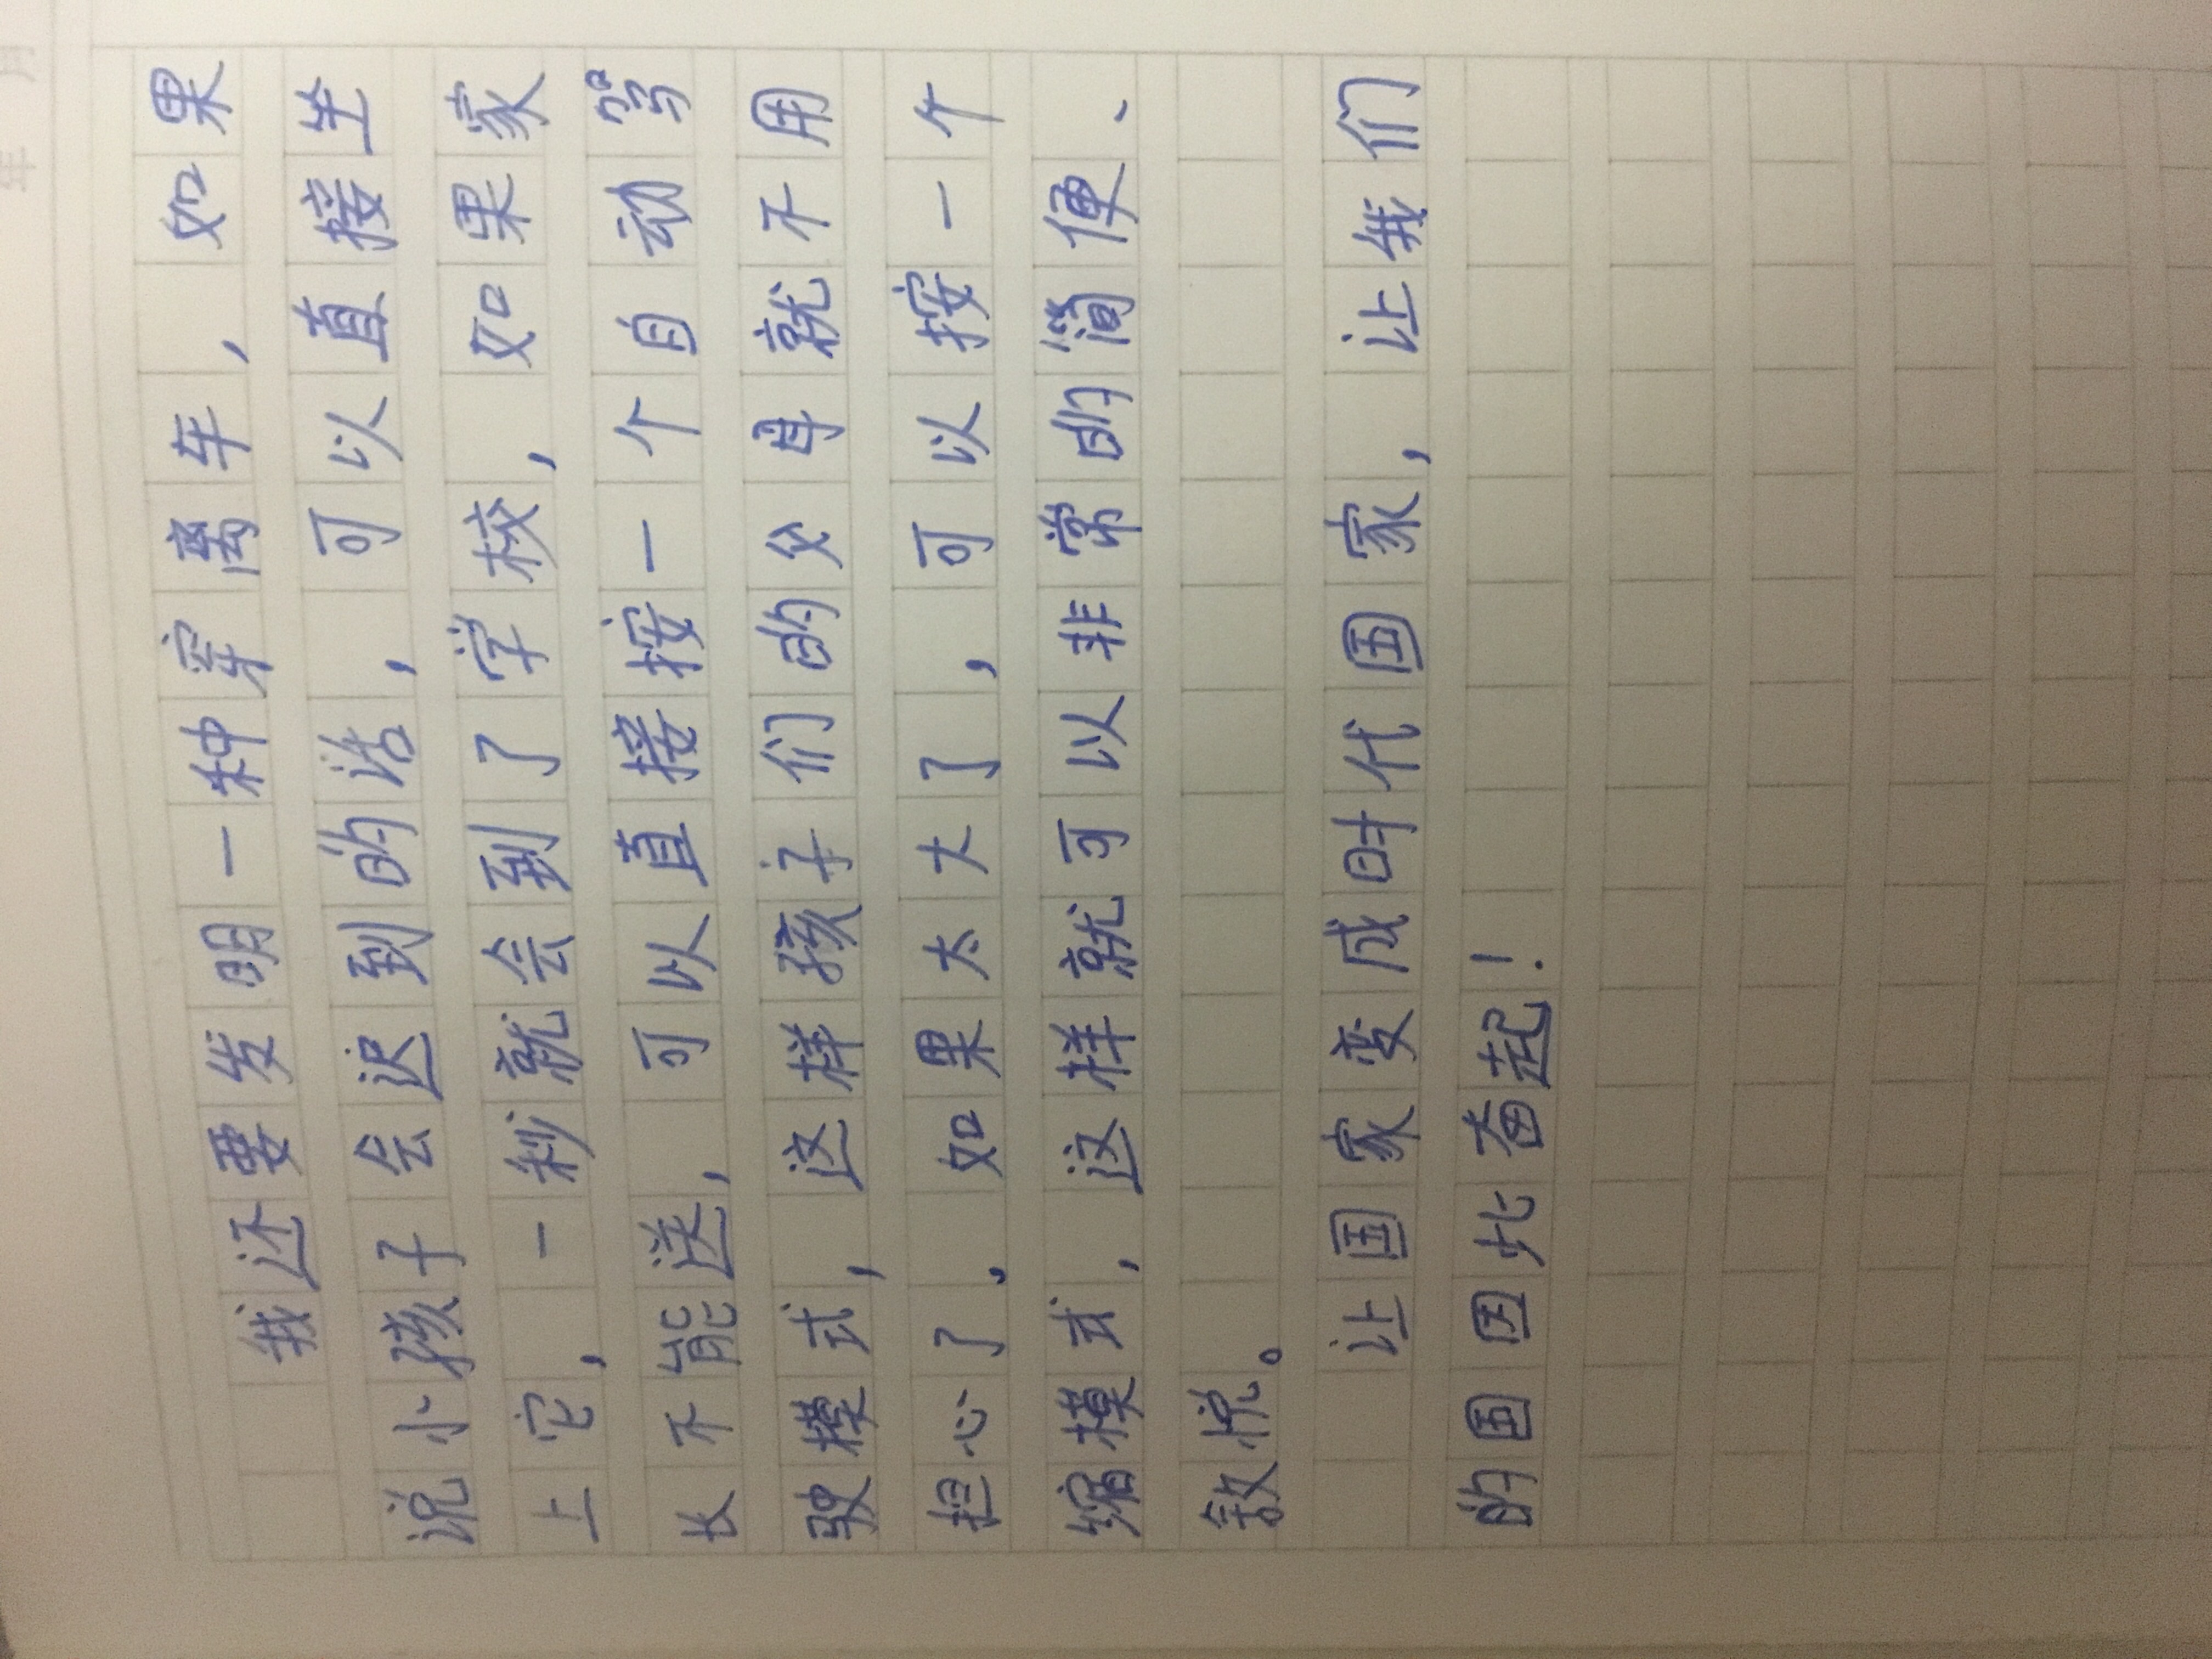 年 月
我还要发明一种穿离车,如果
说小孩子会迟到的话,可以直接坐
上它,一秒就会到了学校,如果家
长不能送,可以直接按一个自动驾
驶模式,这样孩子们的父母就不用
担心了,如果太大了,可以按一个
缩模式,这样就可以非常的简便、
悦。
让国家变成时代国家,让我们
的国因此奋起!